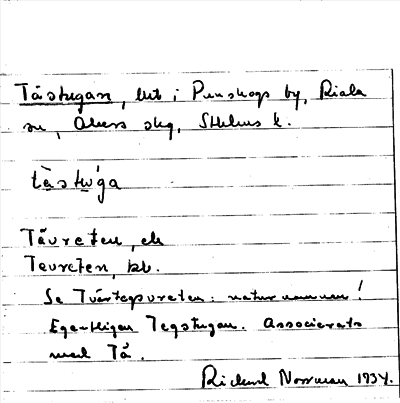 Tåstugan, lht i Penskogs by, Riala
sn, Åkers skg, Sthlms l.
tåstu̇ga
Tåvreten, ek
Tevreten, kb.
Se Tvärtegsvreten: naturnamnen!
Egentligen Tegstugan. Associerats
med Tå.
Rickard Norrman 1934.